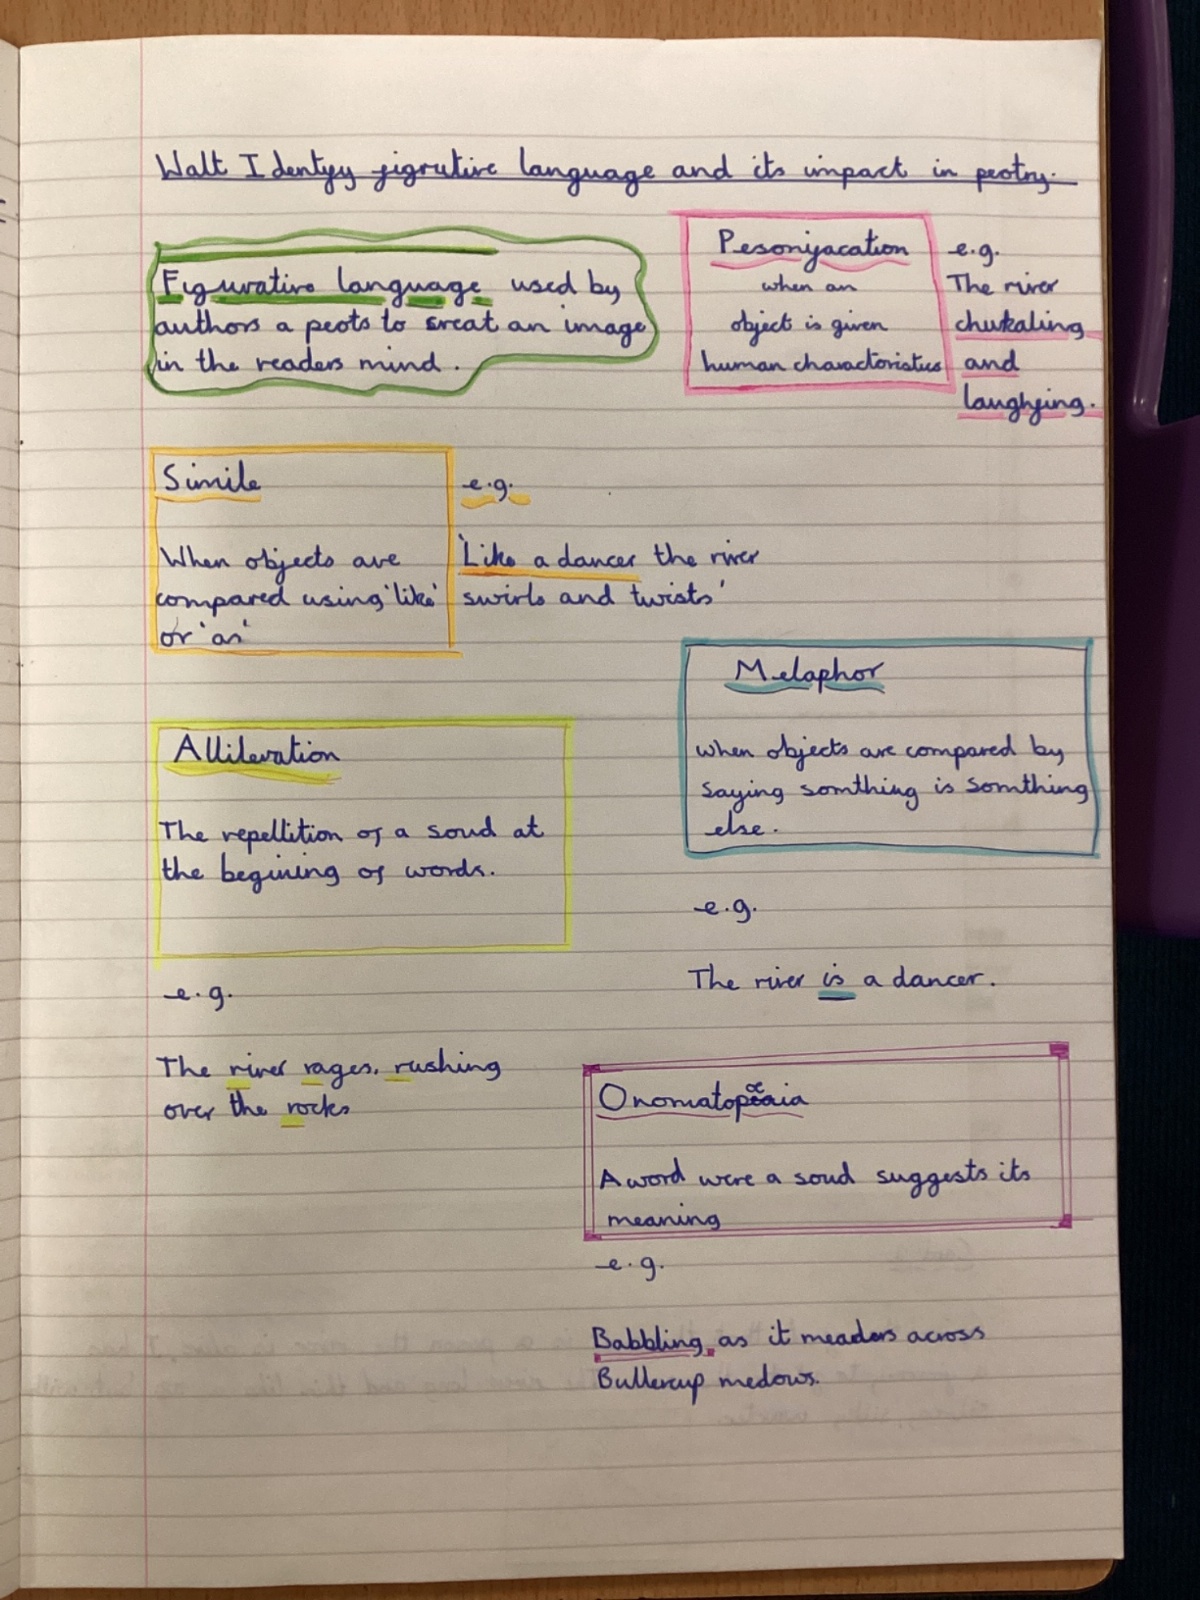 Walt Identyfy figrutive language and its impact in peotry.
Figurative language used by
authors a peots to creat an image
in the readers mind.
Pesonifacation
when an
object is given
human charactoristics
e.g.
The river
chukaling
and
laughfing.
Simile
When objects are
compared using 'like'
or 'as'
e.g.
'Like a dancer the river
swirls and twists'
Metaphor
when objects are compared by
saying somthing is somthing
else.
e.g.
The river is a dancer.
Allitevation
The repettition of a soud at
the begining of words.
e.g.
The river rages, rushing
over the rocks
Onomatopœia
A word were a soud suggests its
meaning
e.g.
Babbling as it meaders across
Buttercup medows.